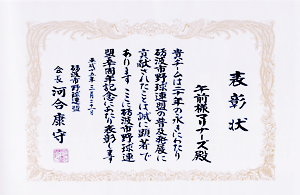 表彰状
午前様ヨナーズ殿
貴チームは二十年の永きにわたり
砺波市野球連盟の普及発展に
貢献されたことは誠に顕著で
あります ここに砺波市野球連
盟五十周年記念にあたり表彰します
平成十五年三月二十一日
砺波市野球連盟
会長 河合康守